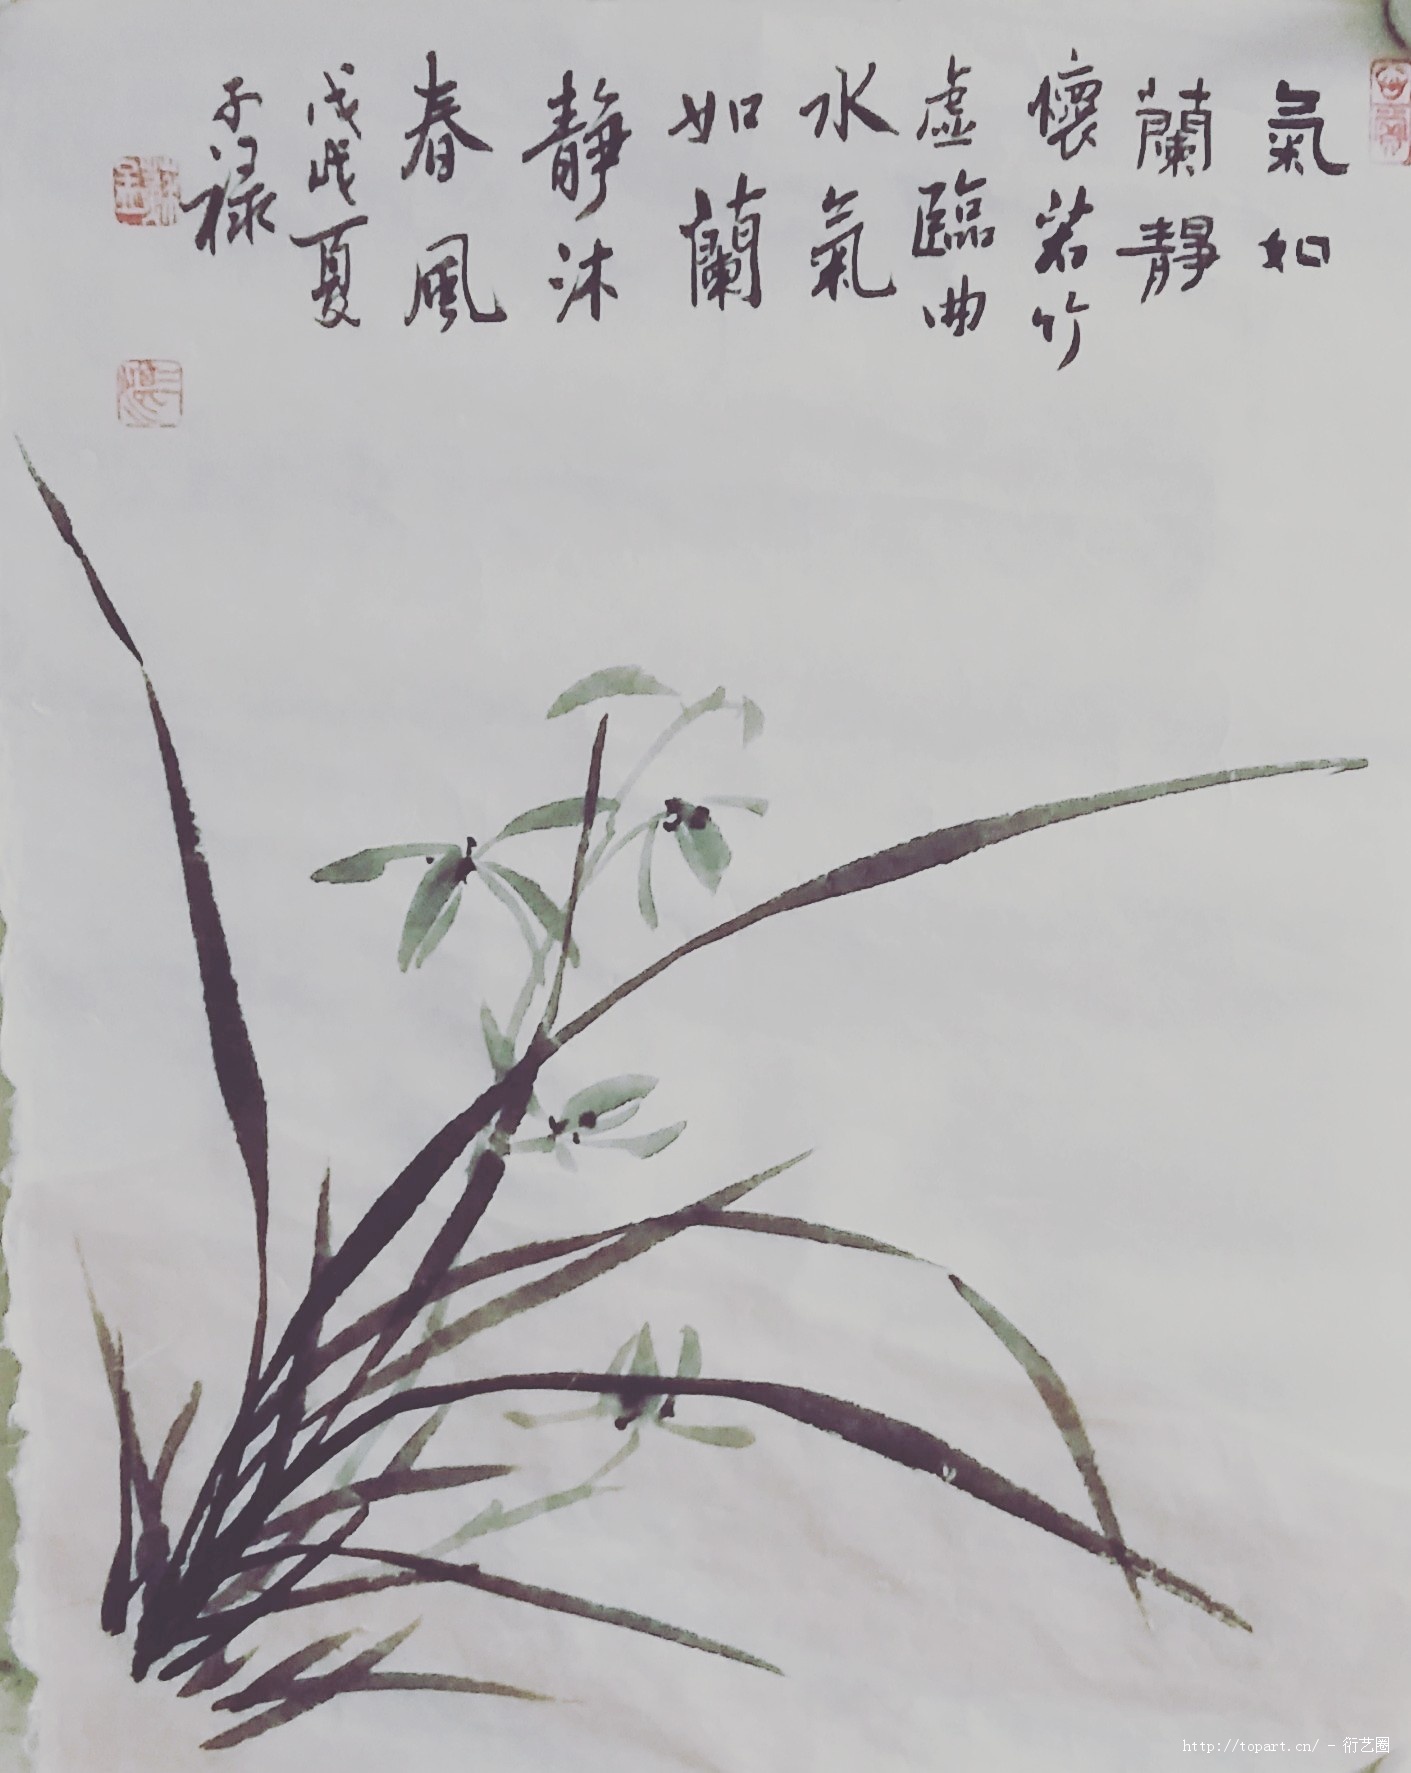 氣如
蘭靜
懷若竹
虛臨曲
水氣
如蘭
靜沐
春風
戊戌夏
子禄
http://topart.cn/ - 衍艺圈